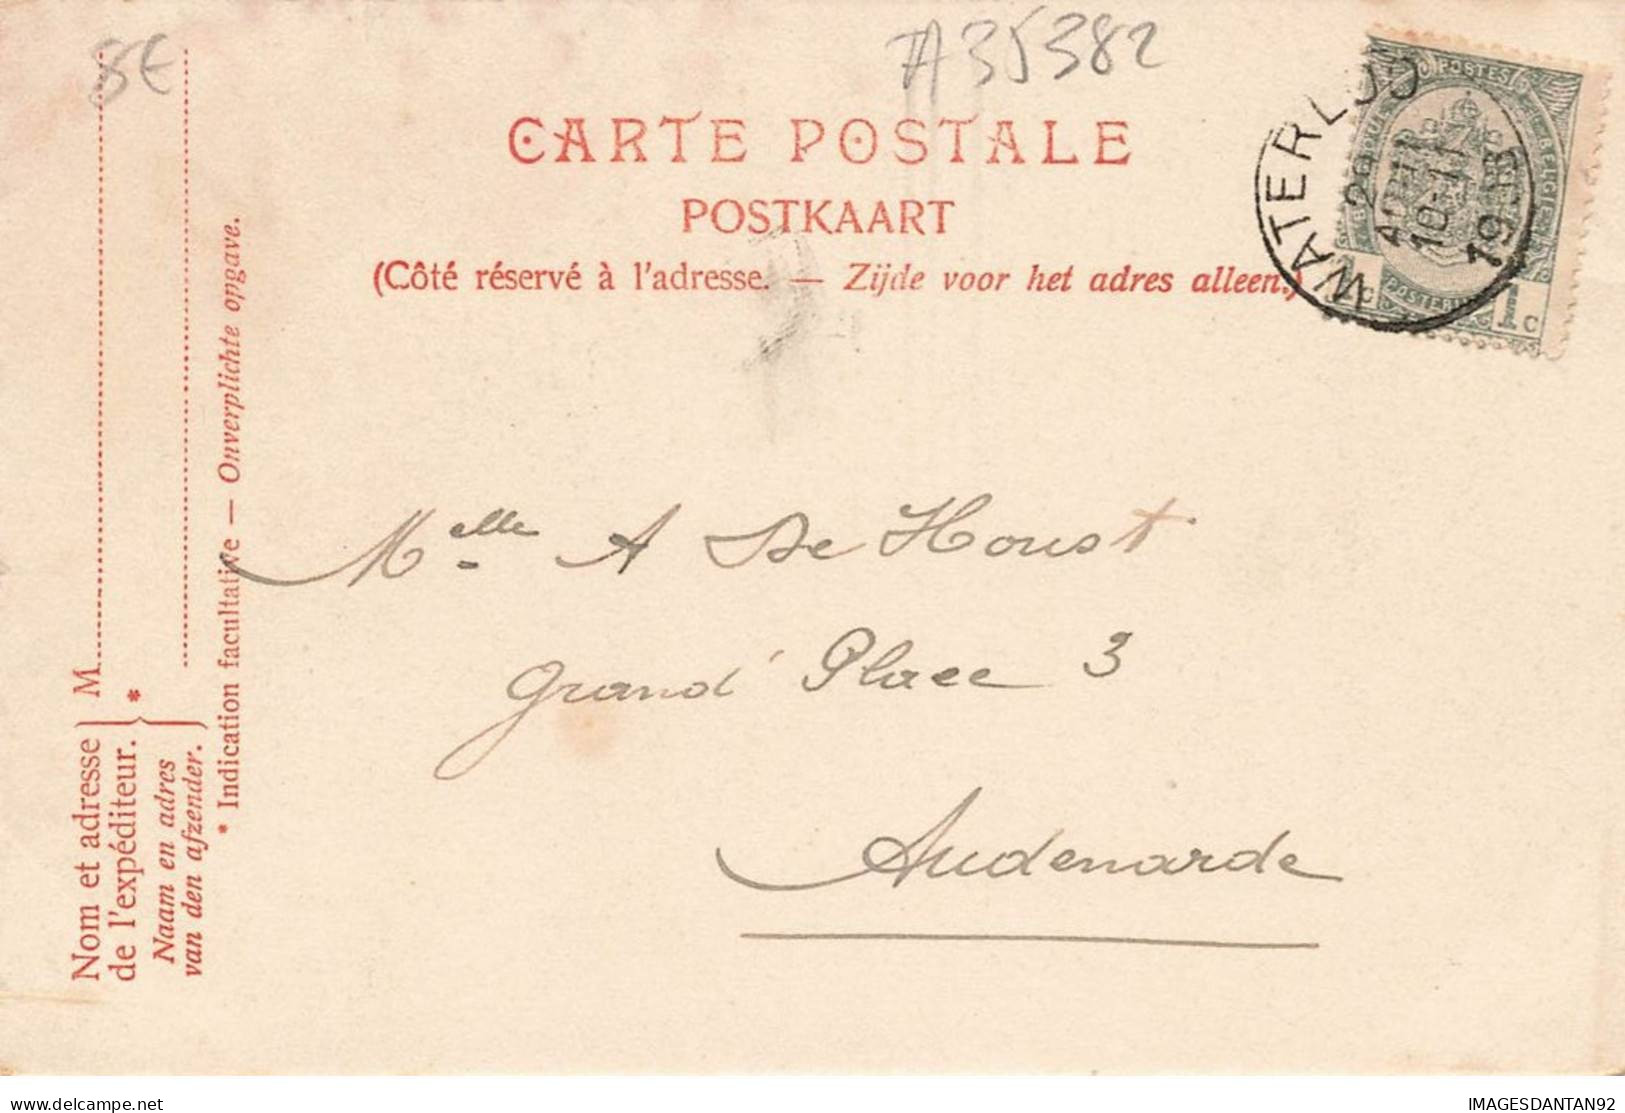 8€
A35382
CARTE POSTALE
POSTKAART
(Côté réservé à l'adresse. — Zijde voor het adres alleen.)
WATERLOO
10-11
POSTES
BELGIE
1c
Nom et adresse
de l'expéditeur.
M
*
Naam en adres
van den afzender.
* Indication facultative — Onverplichte opgave.
Melle A De Houst
Grand' Place 3
Audenarde
delcampe.net
IMAGESDANTAN92